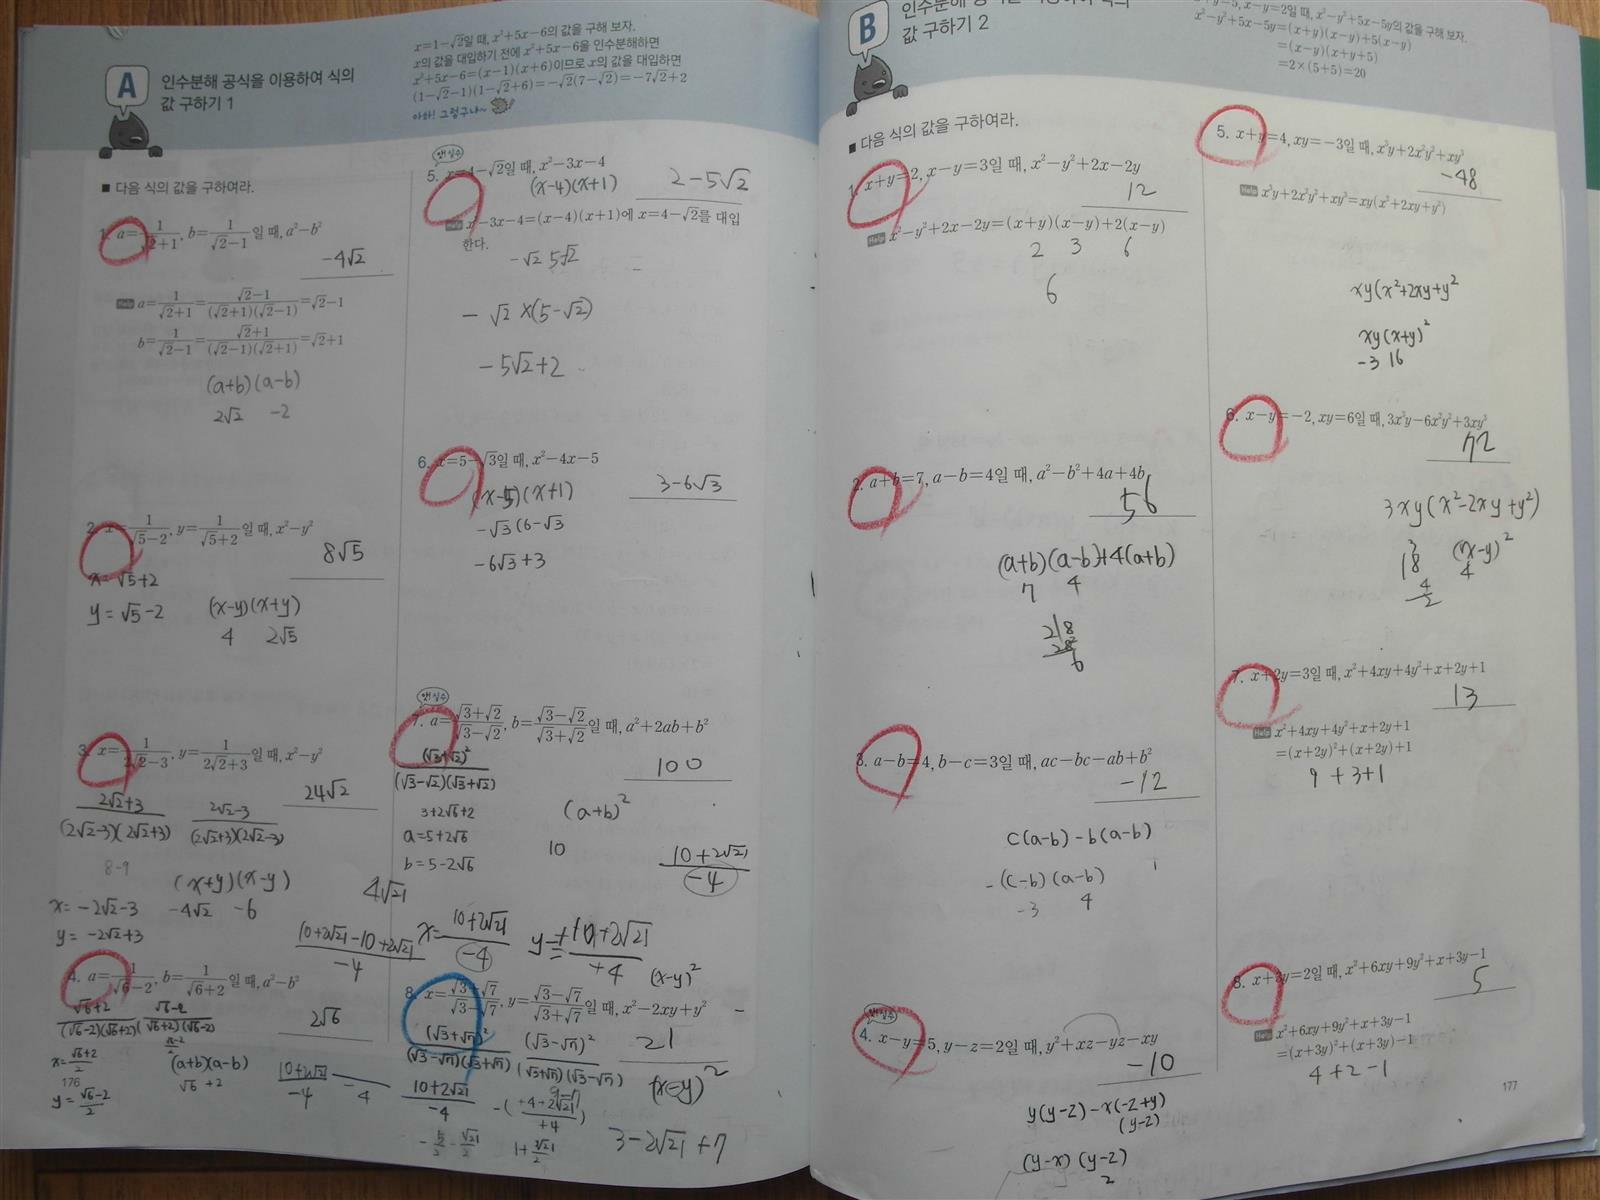 A
인수분해 공식을 이용하여 식의
값 구하기 1
x=1-√2일 때, x²+5x-6의 값을 구해 보자.
x의 값을 대입하기 전에 x²+5x-6을 인수분해하면
x²+5x-6=(x-1)(x+6)이므로 x의 값을 대입하면
(1-√2-1)(1-√2+6)=-√2(7-√2)=-7√2+2
아하! 그렇구나~
■ 다음 식의 값을 구하여라.
1. a=1/(√2+1), b=1/(√2-1)일 때, a²-b²
-4√2
Help a=1/(√2+1)=(√2-1)/((√2+1)(√2-1))=√2-1
b=1/(√2-1)=(√2+1)/((√2-1)(√2+1))=√2+1
(a+b)(a-b)
2√2 -2
2. x=1/(√5-2), y=1/(√5+2)일 때, x²-y²
8√5
x=√5+2
y=√5-2 (x-y)(x+y)
4 2√5
3. x=1/(2√2-3), y=1/(2√2+3)일 때, x²-y²
24√2
(2√2+3)/((2√2-3)(2√2+3)) (2√2-3)/((2√2+3)(2√2-3))
8-9
(x+y)(x-y)
x=-2√2-3 -4√2 -6
y=-2√2+3
4. a=1/(√6-2), b=1/(√6+2)일 때, a²-b²
2√6
(√6+2)/((√6-2)(√6+2)) (√6-2)/((√6+2)(√6-2))
x=(√6+2)/2 (a+b)(a-b)
√6 +2
y=(√6-2)/2
176
앗!실수
5. x=4-√2일 때, x²-3x-4
(x-4)(x+1) 2-5√2
Help x²-3x-4=(x-4)(x+1)에 x=4-√2를 대입
한다.
-√2 5√2
-√2×(5-√2)
-5√2+2
6. x=5-√3일 때, x²-4x-5
(x-5)(x+1) 3-6√3
-√3(6-√3
-6√3+3
앗!실수
7. a=(√3+√2)/(√3-√2), b=(√3-√2)/(√3+√2)일 때, a²+2ab+b²
100
(√3+√2)²/((√3-√2)(√3+√2))
3+2√6+2 (a+b)²
a=5+2√6
b=5-2√6 10
(10+2√21)/-4
4√21
(10+2√21-10+2√21)/-4 x=(10+2√21)/-4
(x-y)²
8. x=(√3+√7)/(√3-√7), y=(√3-√7)/(√3+√7)일 때, x²-2xy+y²
21
(√3+√7)²/((√3-√7)(√3+√7)) (√3-√7)²/((√3+√7)(√3-√7))
(x-y)²
(10+2√21)/-4
3-2√21+7
B
값 구하기 2
x-y=2일 때, x²-y²+5x-5y의 값을 구해 보자.
x²-y²+5x-5y=(x+y)(x-y)+5(x-y)
=(x-y)(x+y+5)
=2×(5+5)=20
■ 다음 식의 값을 구하여라.
1. x+y=2, x-y=3일 때, x²-y²+2x-2y
12
Help x²-y²+2x-2y=(x+y)(x-y)+2(x-y)
2 3 6
6
2. a+b=7, a-b=4일 때, a²-b²+4a+4b
56
(a+b)(a-b)+4(a+b)
7 4
3. a-b=4, b-c=3일 때, ac-bc-ab+b²
-12
c(a-b)-b(a-b)
-(c-b)(a-b)
-3 4
앗!실수
4. x-y=5, y-z=2일 때, y²+xz-yz-xy
-10
y(y-z)-x(-z+y)
(y-z)
(y-x)(y-z)
2
5. x+y=4, xy=-3일 때, x³y+2x²y²+xy³
-48
Help x³y+2x²y²+xy³=xy(x²+2xy+y²)
xy(x²+2xy+y²
xy(x+y)²
-3 16
6. x-y=-2, xy=6일 때, 3x³y-6x²y²+3xy³
72
3xy(x²-2xy+y²)
18 (x-y)²
4
7. x+2y=3일 때, x²+4xy+4y²+x+2y+1
13
Help x²+4xy+4y²+x+2y+1
=(x+2y)²+(x+2y)+1
9+3+1
8. x+3y=2일 때, x²+6xy+9y²+x+3y-1
5
Help x²+6xy+9y²+x+3y-1
=(x+3y)²+(x+3y)-1
4+2-1
177